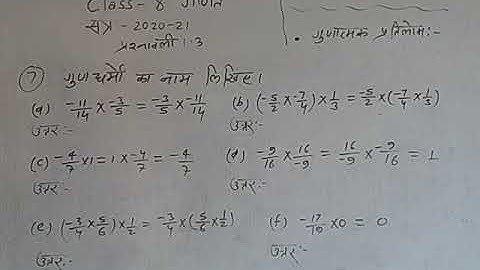 Class - 8 गणित
सत्र - 2020-21
प्रश्नावली 1.3
• गुणात्मक प्रतिलोम:-
⑦ गुणधर्मो का नाम लिखिए।
(a) -11/14 × -3/5 = -3/5 × -11/14 (b) (-5/2 × -7/4) × 1/3 = -5/2 × (-7/4 × 1/3)
उत्तर:- उत्तर:-
(c) -4/7 × 1 = 1 × -4/7 = -4/7 (d) -9/16 × 16/-9 = 16/-9 × -9/16 = 1
उत्तर:- उत्तर:-
(e) (-3/4 × 5/6) × 1/2 = -3/4 × (5/6 × 1/2) (f) -17/19 × 0 = 0
उत्तर:- उत्तर:-